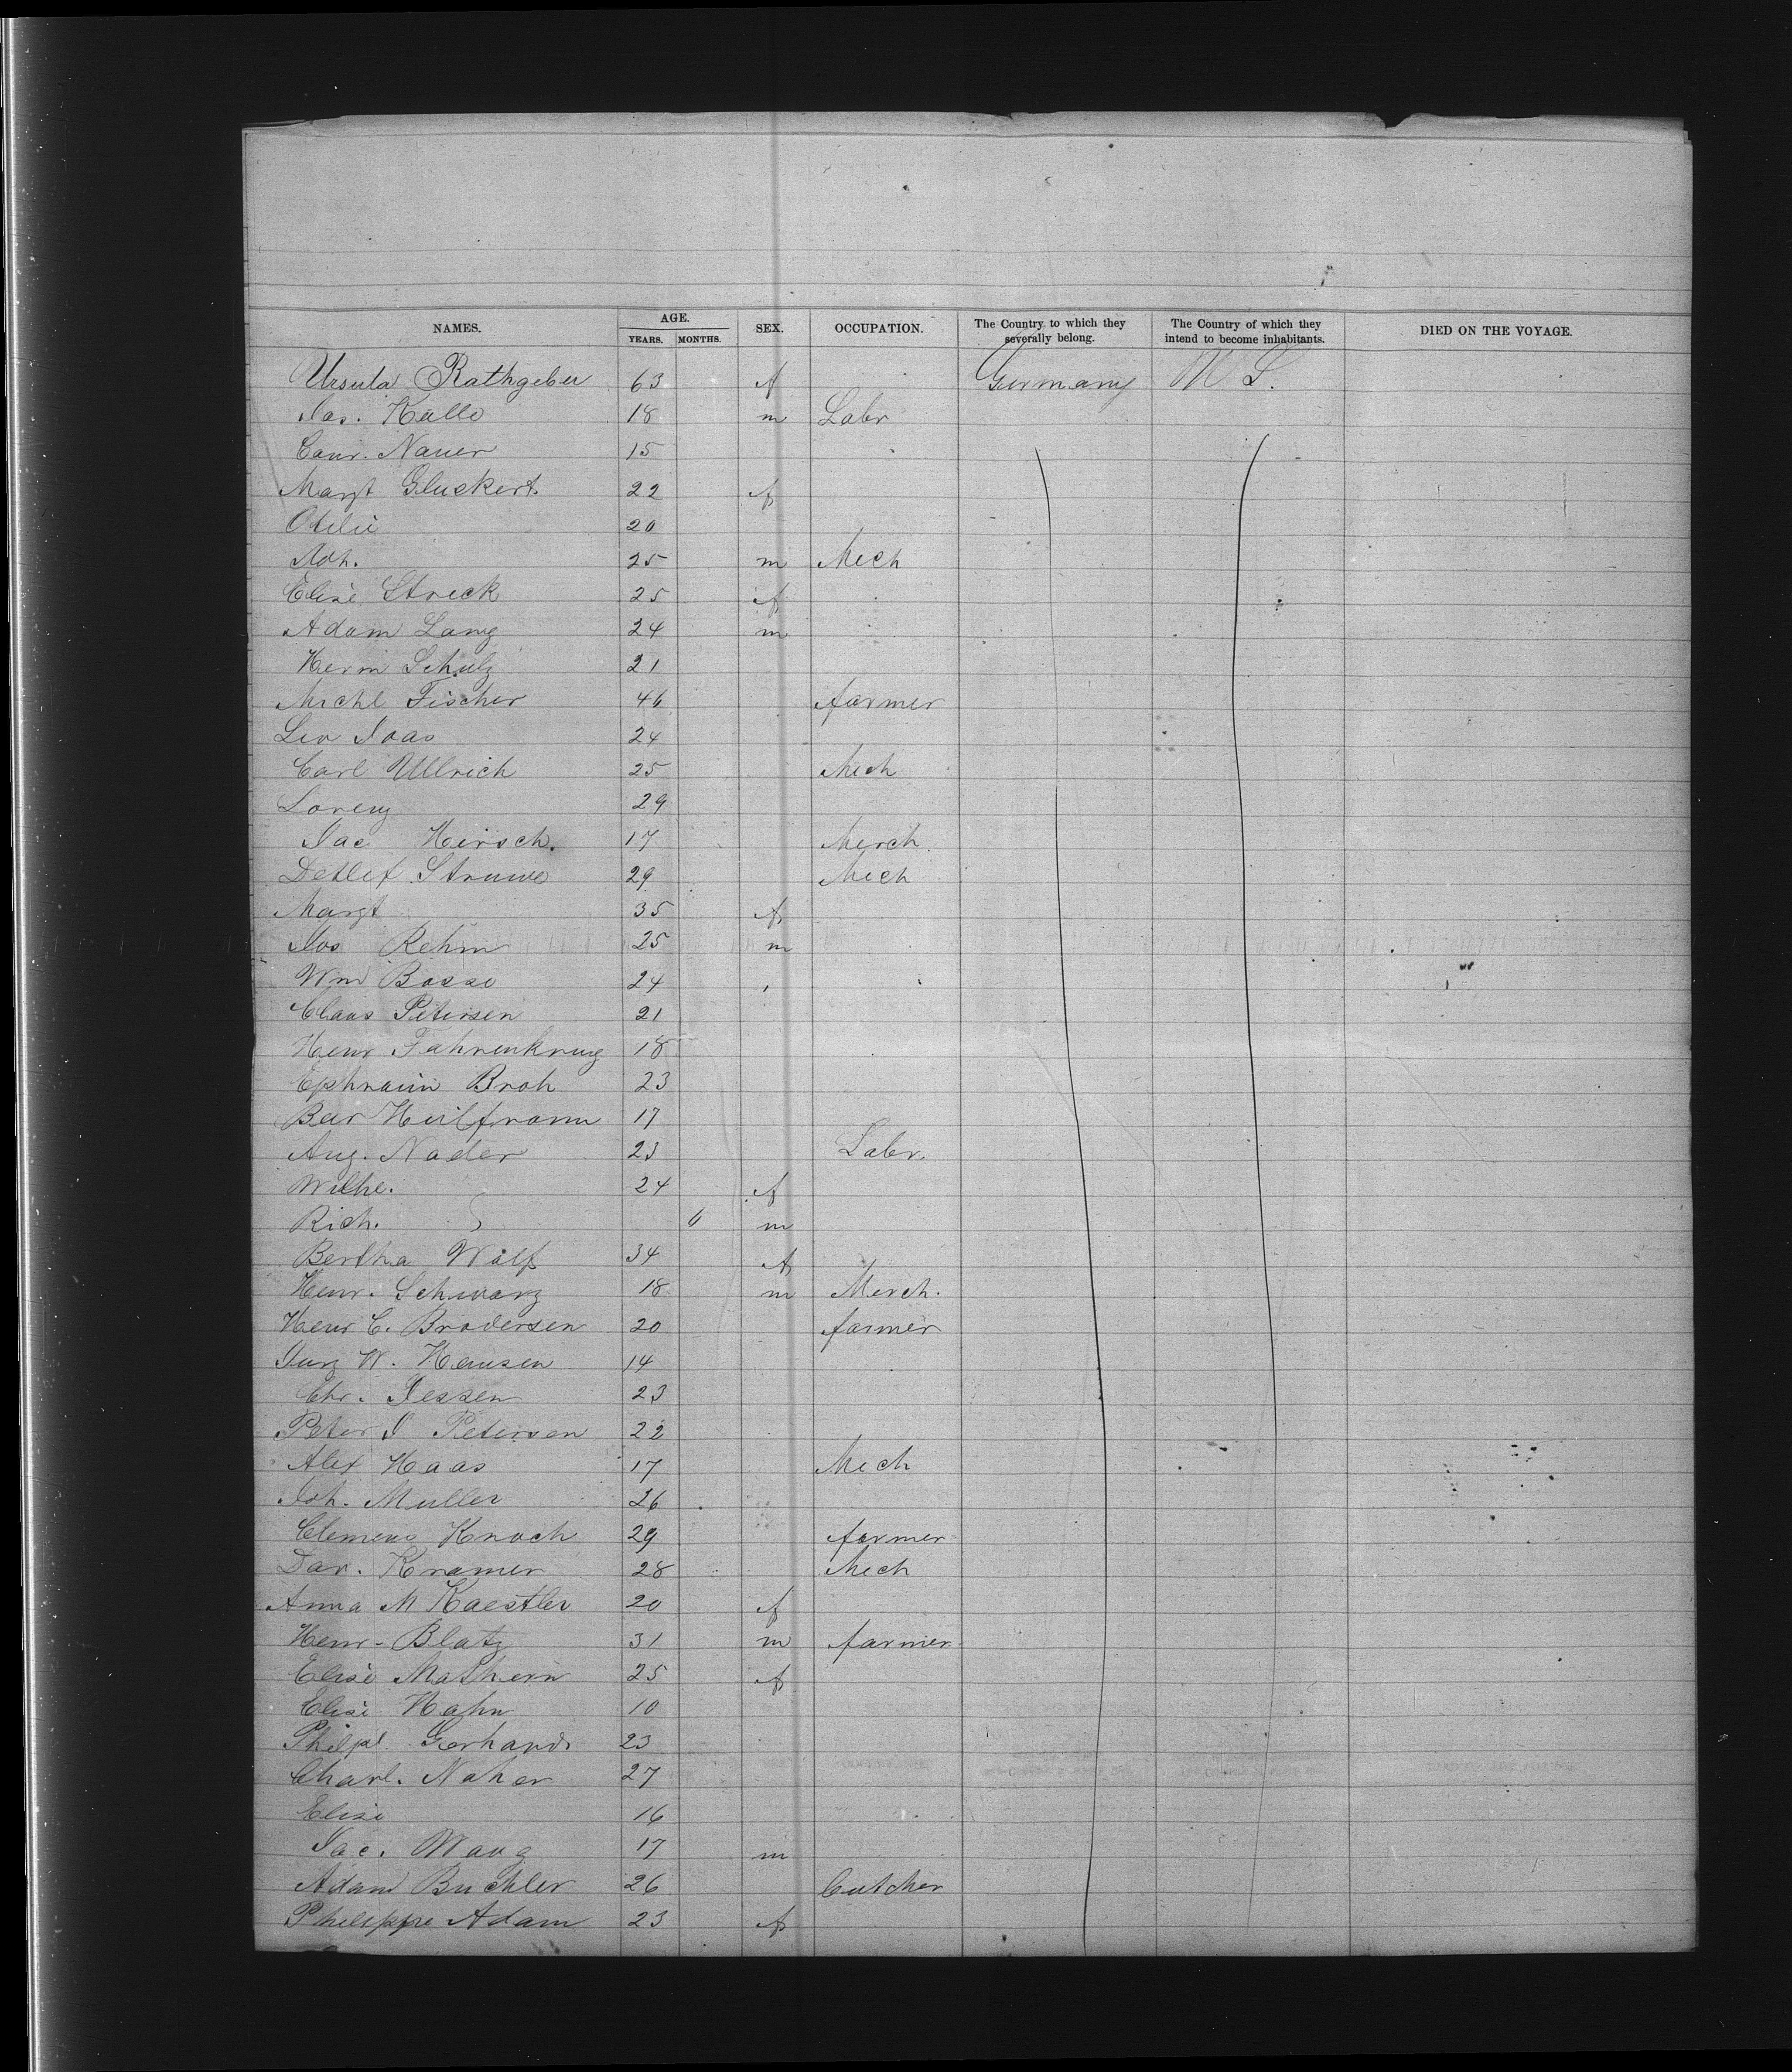 NAMES. AGE. YEARS. MONTHS. SEX. OCCUPATION. The Country to which they severally belong. The Country of which they intend to become inhabitants. DIED ON THE VOYAGE.
Ursula Rathgeber 63 f Germany U S.
Jas. Kalle 18 m Labr
Conr. Nauer 15
Margt Gluckert 22 f
Otilie 20
Joh. 25 m Mech
Elise Streck 25 f
Adam Lang 24 m
Herm Schulz 21
Michl Fischer 46 farmer
Leo Joas 24
Carl Ullrich 25 Mech
Lorenz 29
Jac Hirsch. 17 Merch.
Detlef Struwe 29 Mech
Margt 35 f
Jos Rehm 25 m
Wm Basse 24
Claus Petersen 21
Henr Fahrenkrug 18
Ephraim Broh 23
Beer Heilfronn 17
Aug. Nader 23 Labr.
Wilhe. 24 f
Rich. 6 m
Bertha Wolf 34 f
Henr. Schwarz 18 m Merch.
Henr C. Brodersen 20 farmer
Jurg W. Hansen 14
Chr. Jessen 23
Peter J Petersen 22
Alex Haas 17 Mech
Joh. Muller 26
Clemens Knoch 29 farmer
Dav. Kramer 28 Mech
Anna M Kaestler 20 f
Henr. Blatz 31 m farmer
Elise Mathern 25 f
Elise Hahn 10
Philpl. Gerhard 23
Charl. Naher 27
Elise 16
Jac. Waug 17 m
Adam Buchler 26 butcher
Philippe Adam 23 f